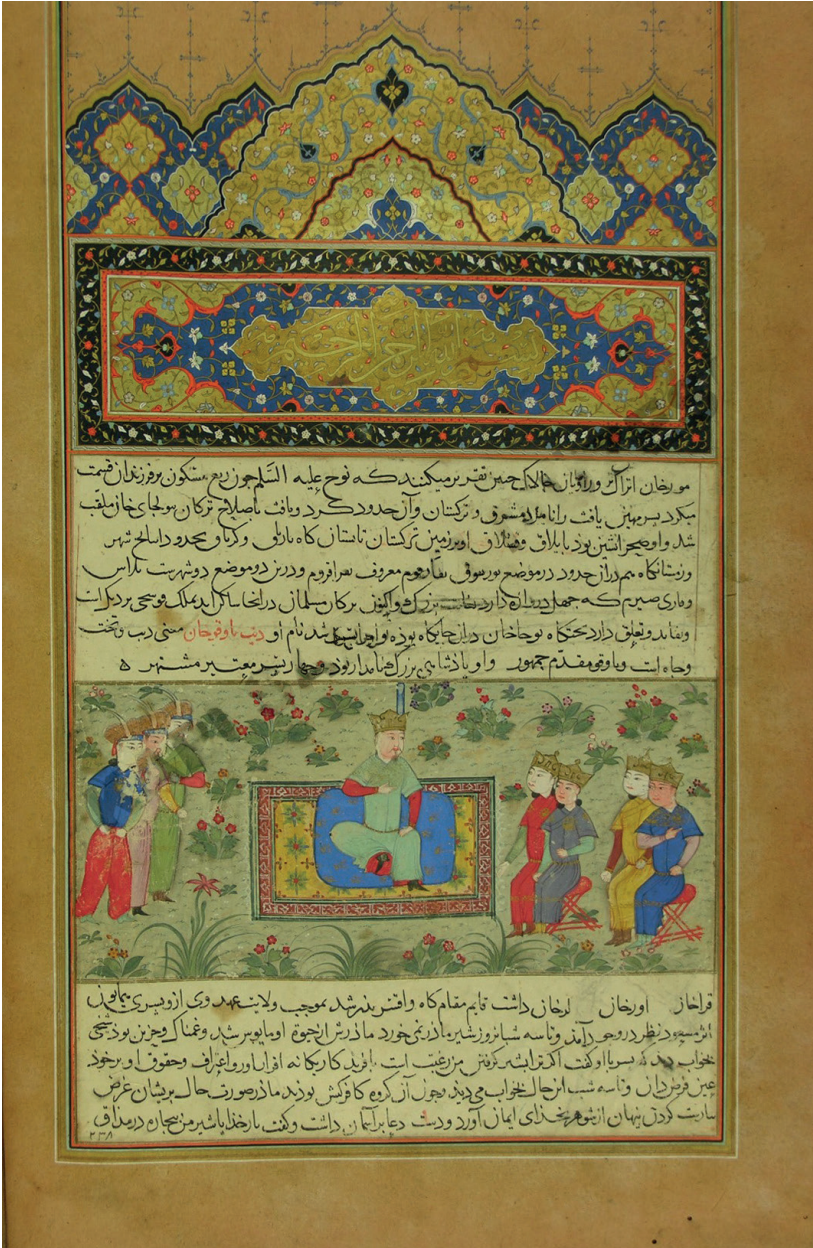 بسم الله الرحمن الرحیم
مورخان اتراک و راویان چالاک چنین تقریر میکنند که نوح علیه السلم چون ربع مسکون بر فرزندان قسمت
میکرد پسر مهین یافث را نامزد مشرق و ترکستان و آن حدود کرد و یافث باصلاح ترکان بولجای خان ملقب
شد و او صحرانشین بود یایلاق و قشلاق او بر زمین ترکستان تابستان کاه و کرتاق بحدود شهر
و زمستانکاه هم در آن حدود در موضع بورسوق قراقروم معروف بقراقروم و درین دو موضع دو شهرست تلاس
و قاری صیرم که چهل دروازه دارد بزرک و اکنون ترکان مسلمان در انجا ساکن اند بملک قونجی نزدیکست
و بقایدو تعلق دارد تختکاه بولجاخان در آن جایکاه بوده و او را پسری شد نام او دیب یاوقوی خان معنی دیب و تخت
و جاه است و یاوقو مقدم جمهور و او پادشاهی بزرک نامدار بود و چهار پسر معتبر مشتهر
قراخان اورخان کرخان داشت قایم مقام کاه و افسر پدر شد بموجب ولایت عهد وی ازو پسری همایون
اثر مسعود نظر در وجود آمد و تا سه شبانروز شیر مادر نمی خورد مادرش از حیوة او مایوس شد و غمناک و حزین بود شبی
بخواب دید که پسر با او کفت اکر ترا بشیر کرفتن من رغبت است بافریدکار یکانه اقرار اور و اعتراف و حقوق او بر خود
عین فرض دان و تا سه شب این حال بخواب می دید و چون آن کروه کافرکیش بودند مادر صورت حال بریشان عرض
نیارست کردن پنهان از شوهر بخدای ایمان آورد و دست دعا بر آسمان داشت و کفت بار خدایا شیر من بیچاره در مذاق
۲۳۸